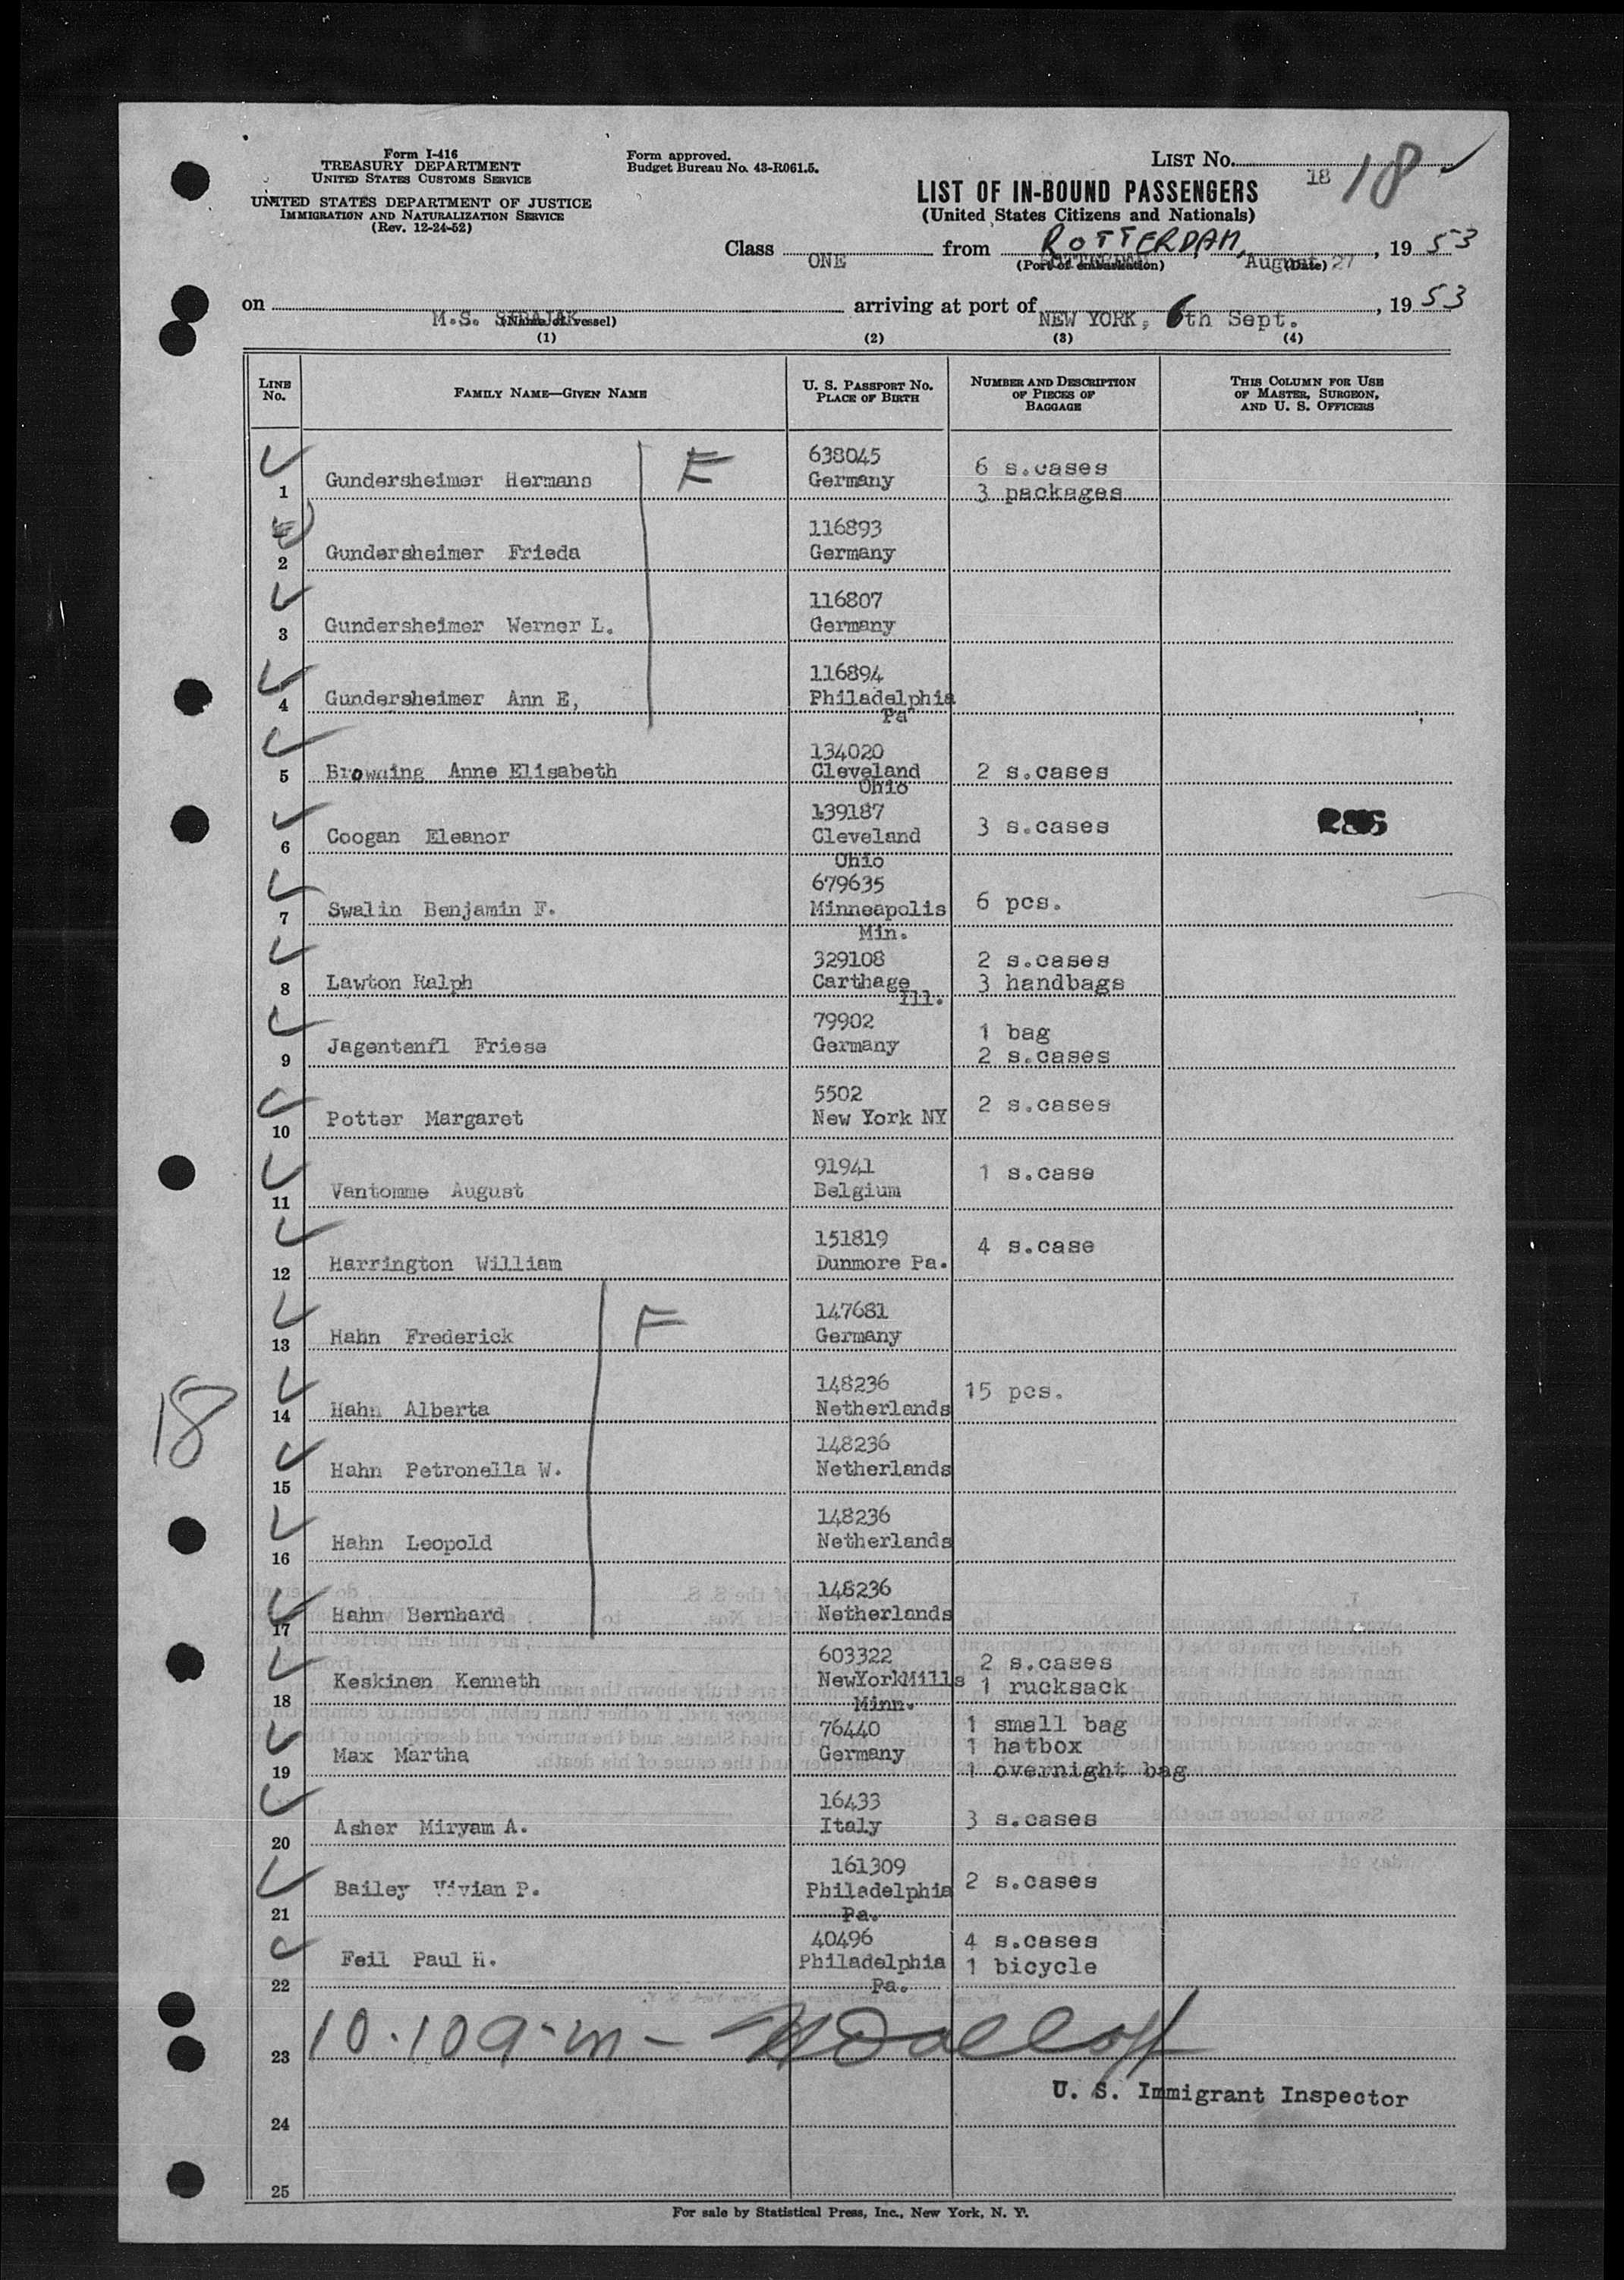 Form I-416
TREASURY DEPARTMENT
UNITED STATES CUSTOMS SERVICE
UNITED STATES DEPARTMENT OF JUSTICE
IMMIGRATION AND NATURALIZATION SERVICE
(Rev. 12-24-52)
Form approved.
Budget Bureau No. 43-R061.5.
LIST No. 18 18
LIST OF IN-BOUND PASSENGERS
(United States Citizens and Nationals)
Class ONE from ROTTERDAM, August 27, 1953
(Port of embarkation) (Date)
on M.S. SIBAJAK arriving at port of NEW YORK, 6th Sept., 1953
(Name of vessel)
(1) (2) (3) (4)
LINE No. FAMILY NAME—GIVEN NAME U. S. PASSPORT No. PLACE OF BIRTH NUMBER AND DESCRIPTION OF PIECES OF BAGGAGE THIS COLUMN FOR USE OF MASTER, SURGEON, AND U. S. OFFICERS
1 Gundersheimer Hermans F 638045 Germany 6 s.cases 3 packages
2 Gundersheimer Frieda 116893 Germany
3 Gundersheimer Werner L. 116807 Germany
4 Gundersheimer Ann E, 116894 Philadelphia Pa
5 Browning Anne Elisabeth 134020 Cleveland Ohio 2 s.cases
6 Coogan Eleanor 139187 Cleveland Ohio 3 s.cases
7 Swalin Benjamin F. 679635 Minneapolis Min. 6 pcs.
8 Lawton Ralph 329108 Carthage Ill. 2 s.cases 3 handbags
9 Jagentenfl Friese 79902 Germany 1 bag 2 s.cases
10 Potter Margaret 5502 New York NY 2 s.cases
11 Vantomme August 91941 Belgium 1 s.case
12 Harrington William 151819 Dunmore Pa. 4 s.case
13 Hahn Frederick F 147681 Germany
14 Hahn Alberta 148236 Netherlands 15 pcs.
15 Hahn Petronella W. 148236 Netherlands
16 Hahn Leopold 148236 Netherlands
17 Hahn Bernhard 148236 Netherlands
18 Keskinen Kenneth 603322 NewYorkMills Minn. 2 s.cases 1 rucksack
19 Max Martha 76440 Germany 1 small bag 1 hatbox 1 overnight bag
20 Asher Miryam A. 16433 Italy 3 s.cases
21 Bailey Vivian P. 161309 Philadelphia Pa. 2 s.cases
22 Feil Paul H. 40496 Philadelphia Pa. 4 s.cases 1 bicycle
18
23 10.10 a.m -
U. S. Immigrant Inspector
24
25
For sale by Statistical Press, Inc., New York, N. Y.